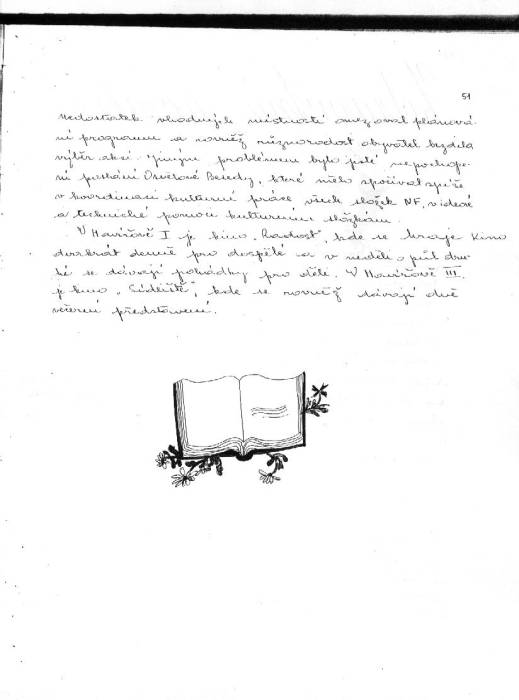 51
Nedostatek vhodných místností omezoval plánová-
ní programu a rovněž různorodost obyvatel bydela
výběr akcí. Jiným problémem bylo jisté nepochope-
ní poslání Osvětové Besedy, které mělo spočívat spíše
v koordinaci kulturní práce všech složek NF, v ideové
a technické pomoci kulturním složkám.
V Havířově I je kino "Radost", kde se hraje kino
dvakrát denně pro dospělé a v neděli o půl dru-
hé se dávají pohádky pro děti. V Havířově III.
je kino "Sídliště", kde se rovněž dávají dvě
večerní představení.